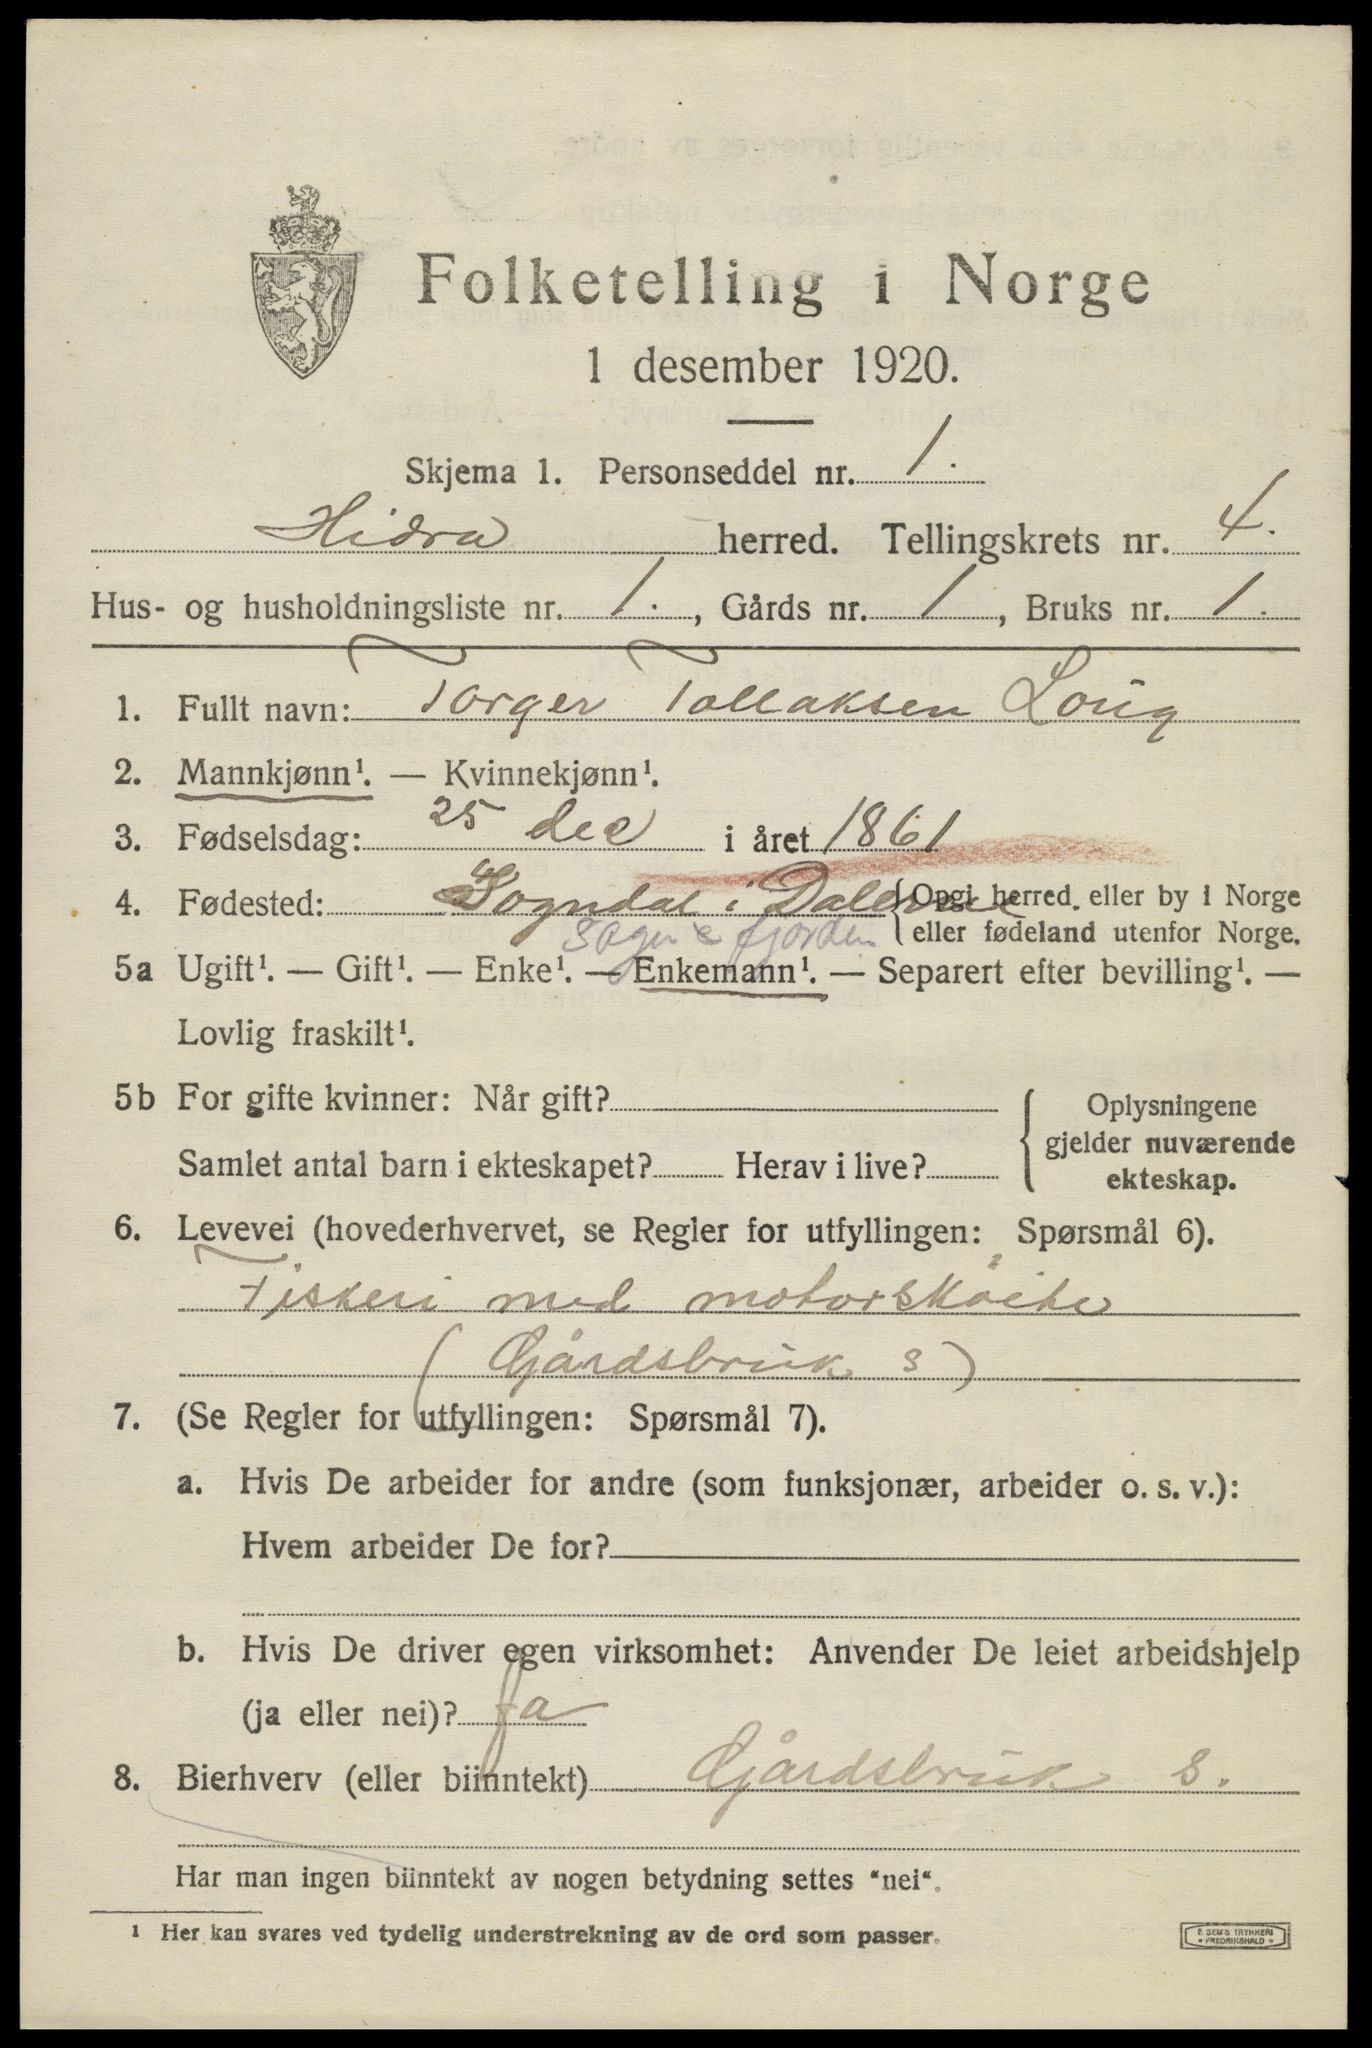 Folketelling i Norge
1 desember 1920.
Skjema 1. Personseddel nr. 1.
Hidra herred. Tellingskrets nr. 4.
Hus- og husholdningsliste nr. 1., Gårds nr. 1, Bruks nr. 1.
1. Fullt navn: Torger Tollaksen Loug
2. Mannkjønn¹. — Kvinnekjønn¹.
3. Fødselsdag: 25 dec i året 1861
4. Fødested: Sogndal i Dalerne {Opgi herred, eller by i Norge
eller fødeland utenfor Norge.
5a Ugift¹. — Gift¹. — Enke¹. — Enkemann¹. — Separert efter bevilling¹. —
Lovlig fraskilt¹.
5b For gifte kvinner: Når gift? { Oplysningene
gjelder nuværende
Samlet antal barn i ekteskapet? Herav i live? ekteskap.
6. Levevei (hovederhvervet, se Regler for utfyllingen: Spørsmål 6).
Fiskeri med motorskøite
(Gårdsbruk s)
7. (Se Regler for utfyllingen: Spørsmål 7).
a. Hvis De arbeider for andre (som funksjonær, arbeider o. s. v.):
Hvem arbeider De for?
b. Hvis De driver egen virksomhet: Anvender De leiet arbeidshjelp
(ja eller nei)? Ja
8. Bierhverv (eller biinntekt) Gårdsbruk s.
Har man ingen biinntekt av nogen betydning settes "nei".
1 Her kan svares ved tydelig understrekning av de ord som passer.
E SEM'S TRYKKERI
• FREDRIKSHALD •